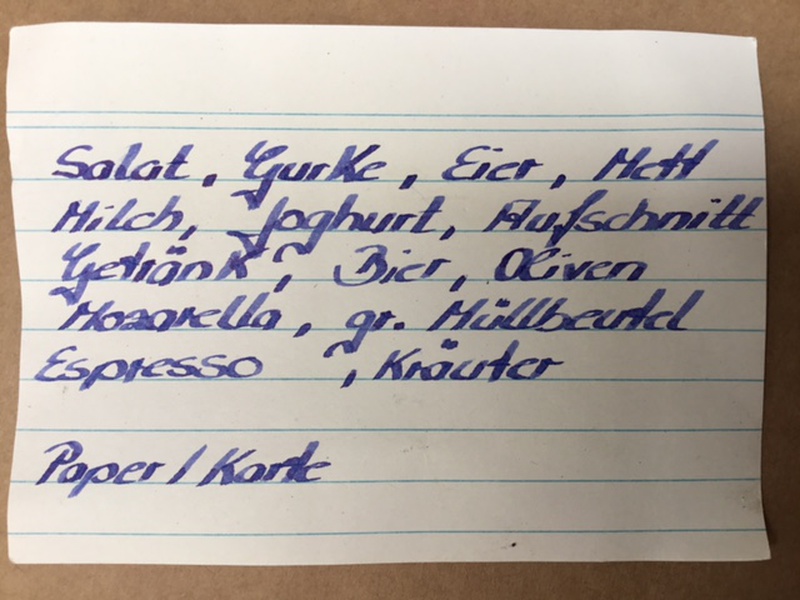 Salat, Gurke, Eier, Mett
Milch, Joghurt, Aufschnitt
Getränk, Bier, Oliven
Mozarella, gr. Müllbeutel
Espresso , Kräuter
Paper / Karte